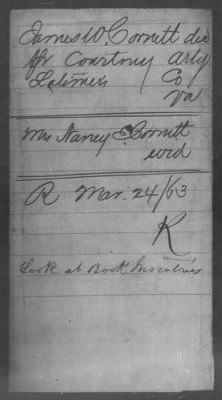 James W. Cornett dec
Fr Courtney Arty
Latimer's Co
Va
Mrs Nancy E Cornett
wid
R Mar. 24/63
K
Look at Book Inventories